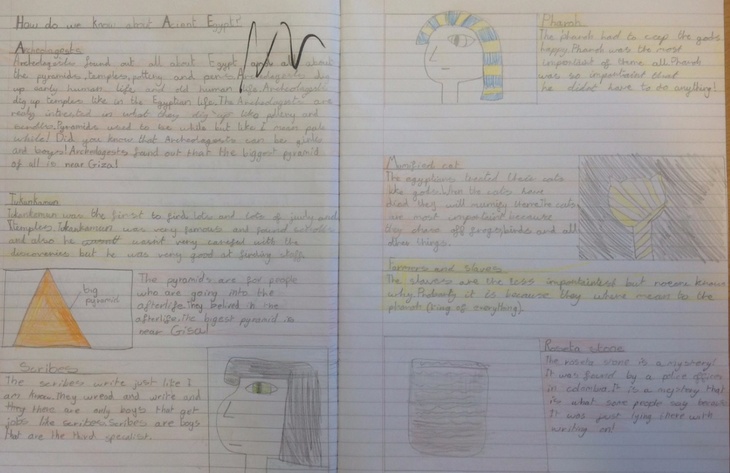 How do we know about Aciant Egypt?
Archeologests
Archeologists found out all about Egypt about
the pyramids, temples, pottery, and Archeologests dig
up early human life and old human life. Archeologests
dig up temples like in the Egyptian life. The Archeologests are
realy intrested in what they dig up like pottery and
Pyramids used to be white but like a mean pale
white! Did you know that Archeologests can be girls
and boays! Archeologests found out that the biggest pyramid
of all is near Giza!
Tutankamun
Tutankamun was the first to finds lots and lots of and
Temples. Tutankamun was very famous and found
and also he wasnt very carefull with the
discoveries but he was very good at finding stuff.
big
pyramid
The pyramids are for people
who are going into the
afterlife. They belived in the
afterlife. The bigest pyramid is
near Grisa!
Scribes
The scribes write just like I
am They wread and write and
they there are only boys that get
jobs like scribes. Scribes are boys
that are the third specialest.
Pharoh
The pharoh had to ceep the gods
happy. Pharoh was the most
importent of them all. Pharoh
was so importaint that
he didnt have to do anything!
Mumified cat
The egyptians treated there cats
like gods. When the cats have
died they will mumify them. The cats
are most importaint because
they chase off and all
other things.
Farmers and slaves
The slaves are the less importaintest but noone knows
why. Probanly it is because they where mean to the
pharoh (king of everything).
Roseta stone
The roseta stone is a mystery!
It was found by a police officer
in It is a mystery that
is what some people say becaus
It was just lying there with
writing on!